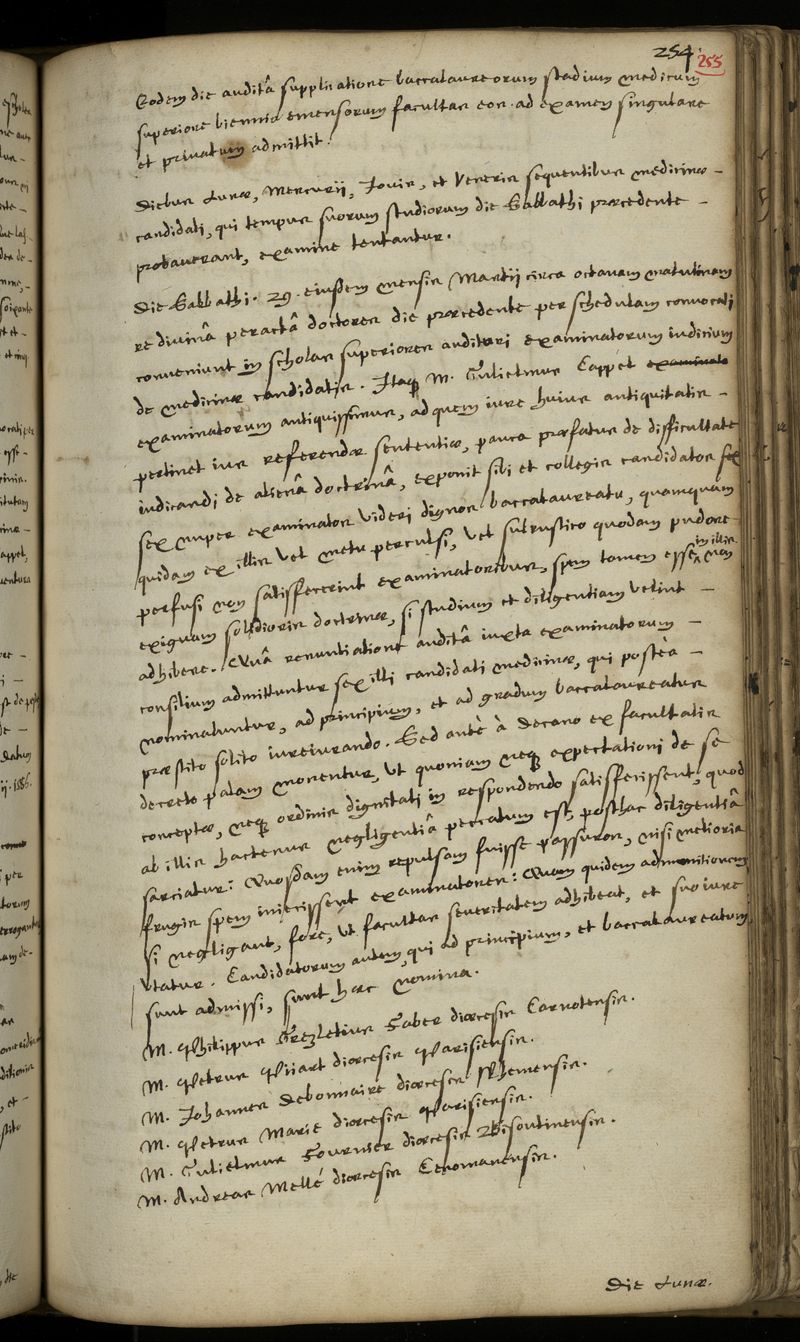 254
255
Eodem die auditâ supplicatione baccalaureorum stadium medicum
superiore biennio emensorum facultas eos ad examen singulare
et privatum admittit.
Diebus Lunæ, Mercurij, Jovis, et Veneris sequentibus medicinæ -
candidati, qui tempus suorum studiorum die Sabbathi præcedente -
probaverant, examine tentantur.
Die Sabbathi. 29. eiusdem mensis Martij circa octavam matutinam
re divinâ peractâ doctores die præcedente per schedulam convocati
conveniunt in scholas superiores audituri examinatorum iudicium
de medicinæ candidatis. Itaq; M. Gulielmus Cappel examinato
examinatorum antiquissimus, ad quem iure huius antiquitatis -
pertinet ius referendæ sententiæ, pauca præfatus de difficultate
iudicandi de alienâ doctrinâ, exponit sibi et collegis candidatos sex
sex nuper examinatos videri dignos baccalaureatu, quamquam
quidam ex illis vel metu perculsi, vel subrustico quodam pudore
perfusi non satisfecerint examinatoribus, spem tamen esse in illis non
exiguam solidioris doctrinæ, si studium et diligentiam velint -
adhibere. Quâ renuntiatione auditâ iuxta examinatorum -
consilium admittuntur sex illi candidati medicinæ, qui posteà -
nominabuntur, ad principium, et ad gradum baccalaureatus
præstito solito iureiurando. Sed antè à Decano ex facultatis
decreto palam monentur, ut quoniam neq; expectationi de se
conceptæ, neq; ordinis dignitati in respondendo satisfecissent, quod
ab illis hactenus negligentiâ peccatum est, posthac diligentiâ
sarciatur: Quosdam enim repulsam fuisse passuros, nisi melioris
frugis spem iniecissent examinatores: Quam quidem admonitionem
si negligant, fore, ut facultas severitatem adhibeat, et suo iure
utatur. Candidatorum autem, qui ad principium, et baccalaureatum
sunt admissi, sunt hæc nomina.
M. Philippus Grezletius Faber diœcesis Carnotensis.
M. Petrus Pijart diœcesis Parisiensis.
M. Johannes Debonnaire diœcesis Rhemensis.
M. Petrus Marie diœcesis Parisiensis.
M. Gulielmus Fournier diœcesis Bisontinensis.
M. Andreas Mellé diœcesis Cenomanensis.
Die Lunæ.